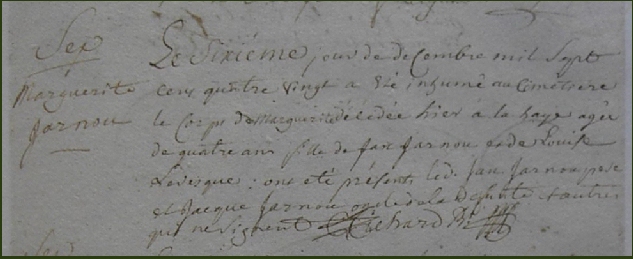 Sep
Marguerite
Jarnou
Le Sixiéme jour de decembre mil Sept
cens quatre vingt a été inhumé au Cimétiere
le Corps de Marguerite décédée hier a la haye agée
de quatre ans fille de Jan Jarnou et de Louise
Levesque : ont été présents led. Jan Jarnou pere
et Jacque Jarnou oncle de la défunte et autres
qui ne signent